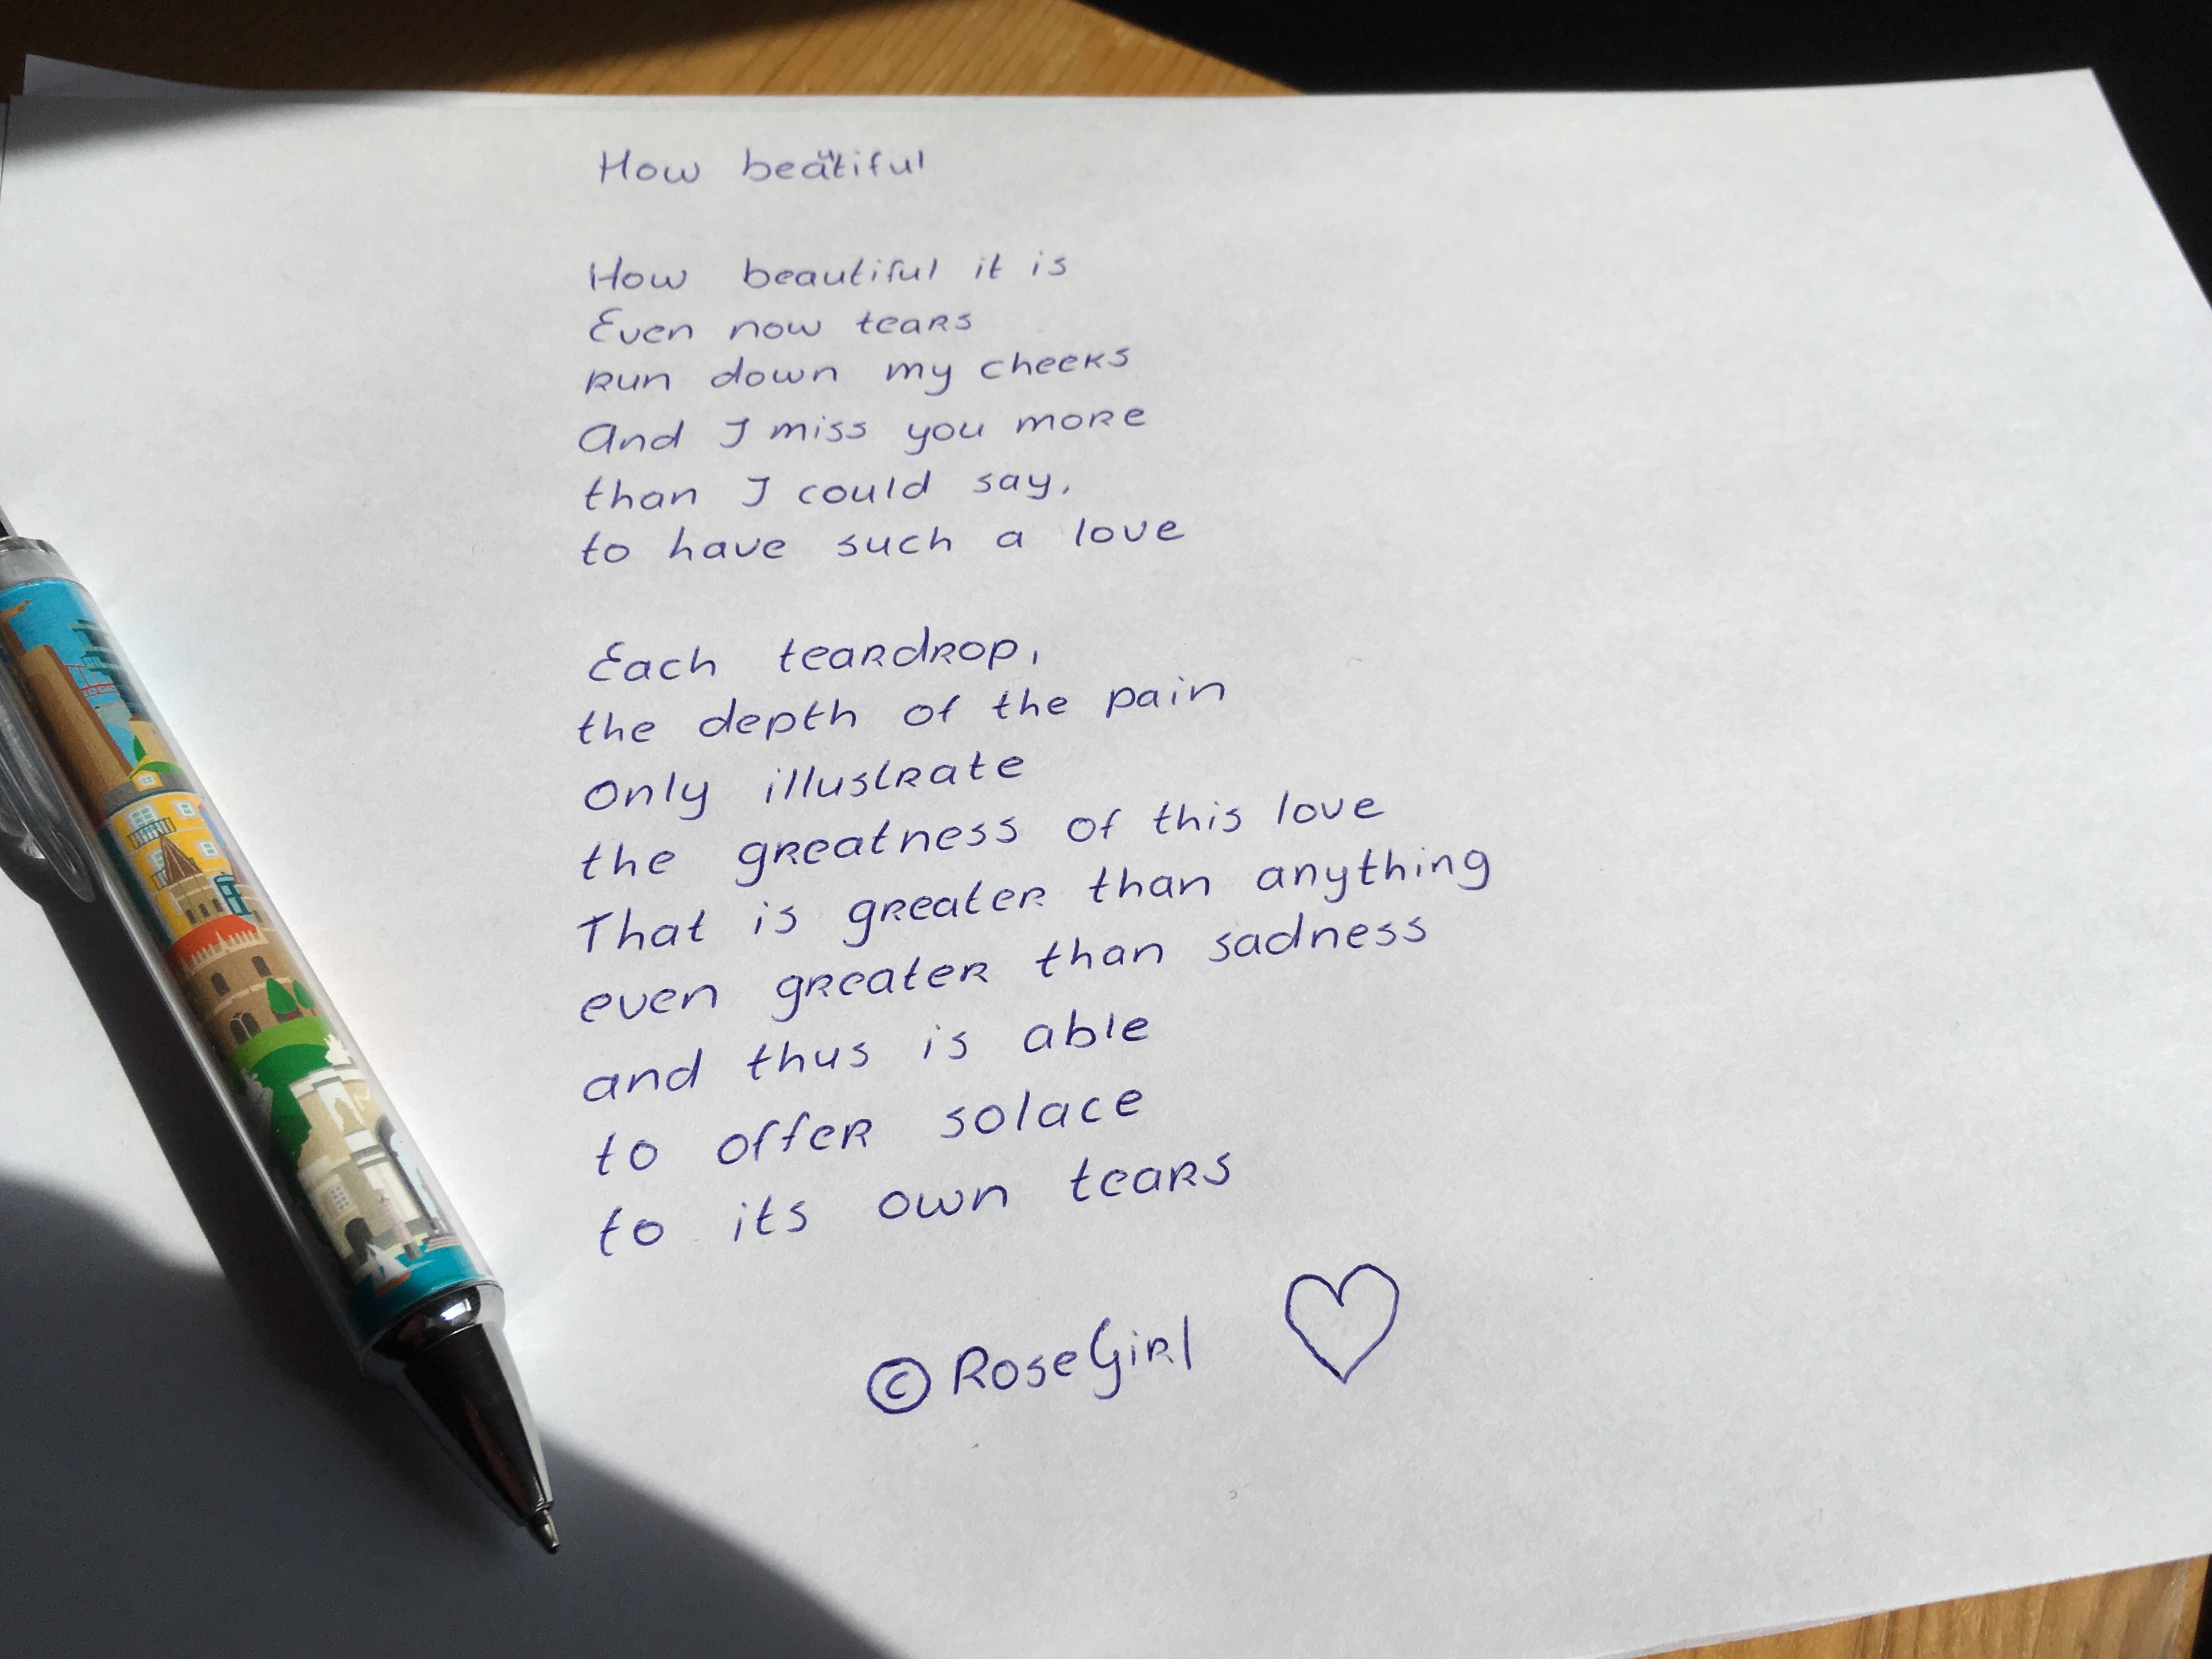 How beautiful
How beautiful it is
Even now tears
run down my cheeks
And I miss you more
than I could say,
to have such a love
Each teardrop,
the depth of the pain
Only illustrate
the greatness of this love
That is greater than anything
even greater than sadness
and thus is able
to offer solace
to its own tears
© RoseGirl